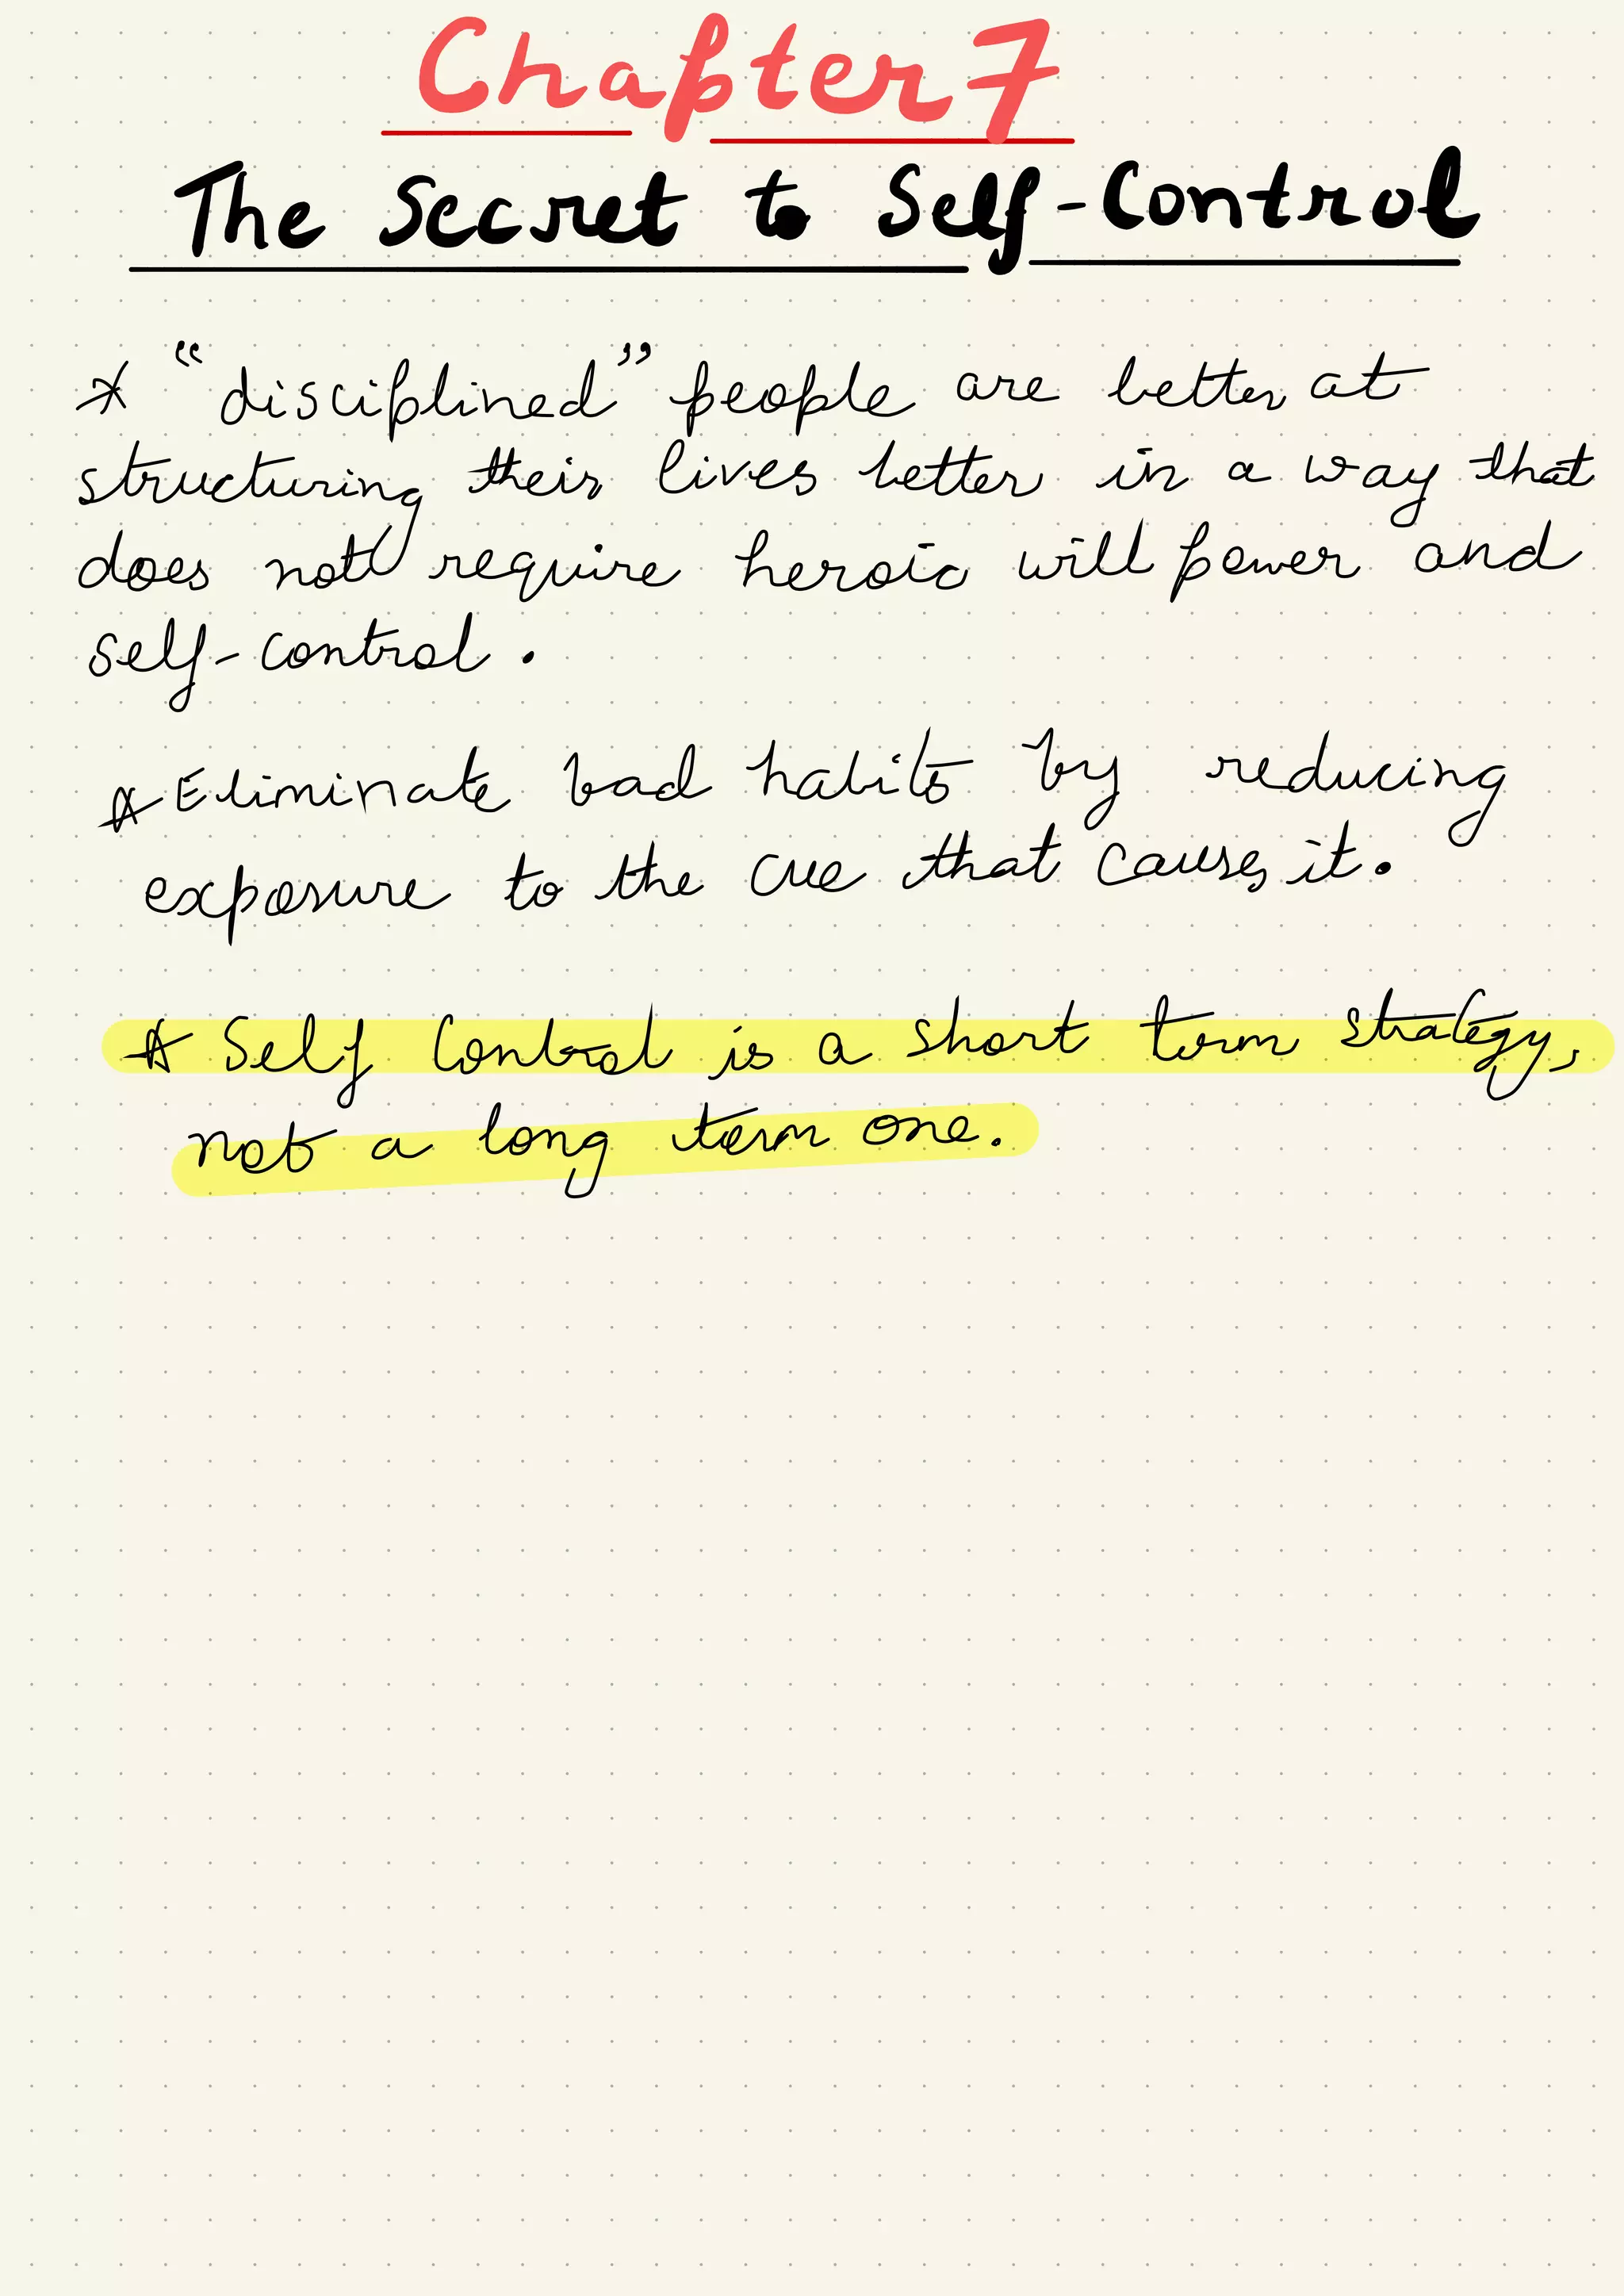 Chapter 7
The Secret to Self-Control
* "disciplined" people are better at
structuring their lives better in a way that
does not require heroic will power and
self-control.
* Eliminate bad habits by reducing
exposure to the cue that causes it.
* Self Control is a short term strategy,
not a long term one.